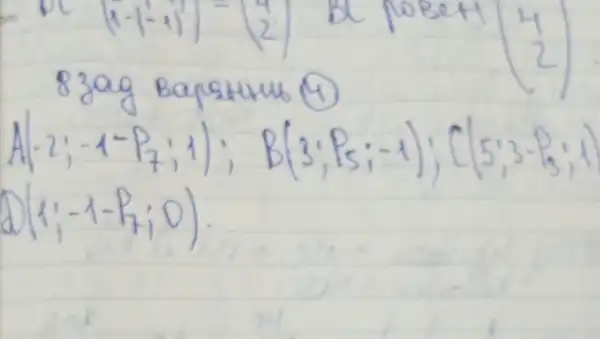 (4 2) ВС ровен (4 2)
8 зад вариянть ④
A(-2; -1-P₇; 1); B(3; P₅; -1); C(5; 3-P₃; 1)
D(1; -1-P₇; 0).